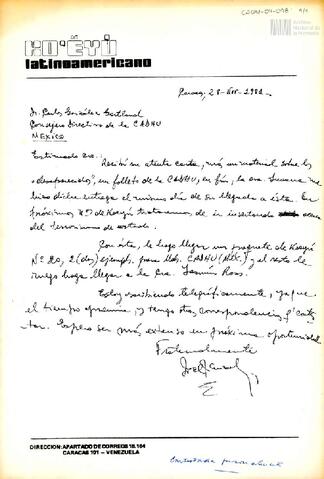 CADHU-04-098 1/1
Archivo Nacional de la Memoria
KO'EYÚ
latinoamericano
Caracas, 28-Nov-1981
Sr. Carlos González Gartland
Consejo Directivo de la CADHU
MEXICO
Estimado Dr.
Recibí su atenta carta, más un material sobre los
"desaparecidos", un folleto de la CADHU, en fin, la Dra.
hizo dicha entrega el mismo día de su llegada a ésta. En
próximos Nº de Koeyú trataremos de ir insertando acerca
del terrorismo de estado.
Con ésta, le hago llegar un paquete de Koeyú
Nº 20, 2 (dos) ejempls. para Uds. CADHU (Méx.) y el resto le
ruego haga llegar a la Dra. Ross.
Estoy escribiendo telegráficamente, ya que
el tiempo apremia y tengo otras correspondencias p' contes-
tar. Espero ser más extenso en próxima oportunidad
Fraternalmente
DIRECCION: APARTADO DE CORREOS 18.164
CARACAS 101 - VENEZUELA